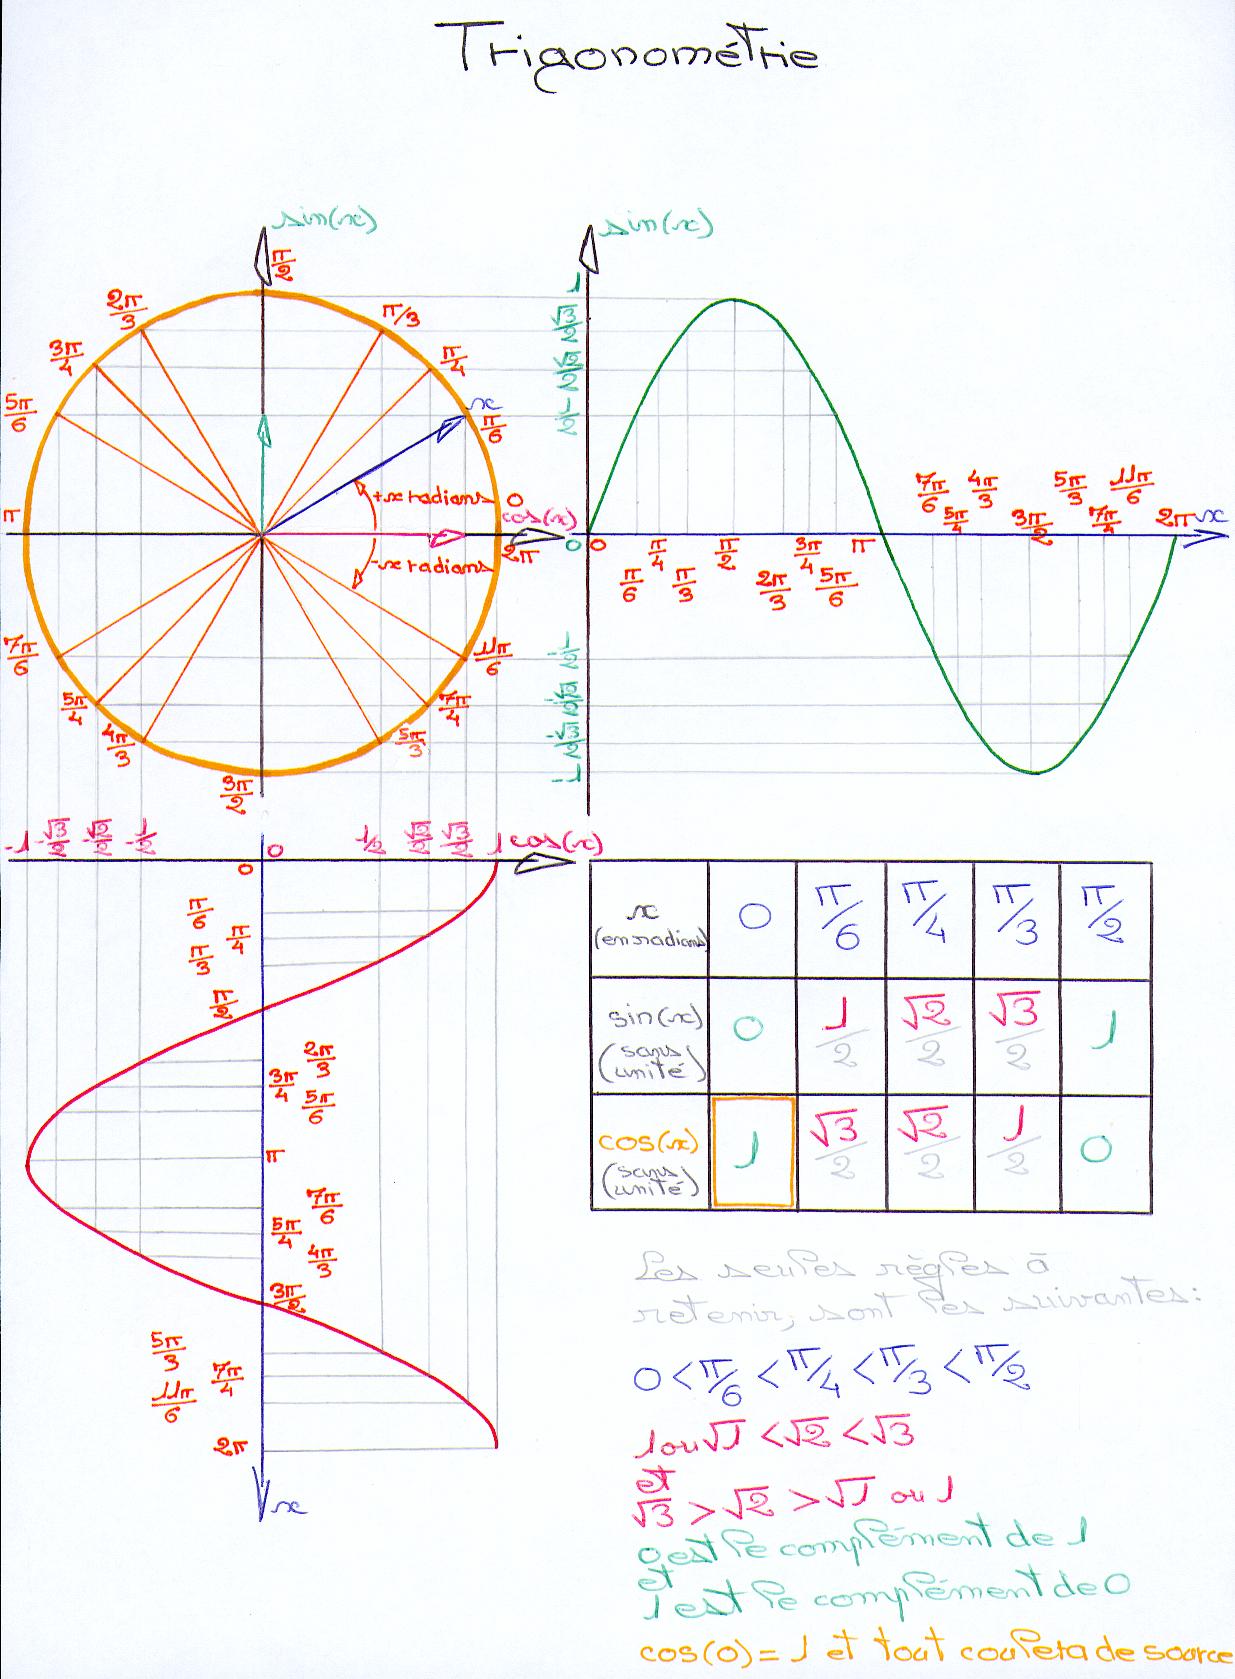 Trigonométrie
sin(x)
π/2
2π/3
π/3
3π/4
π/4
5π/6
x
π/6
+x radians
0
π
cos(x)
2π
-x radians
7π/6
11π/6
5π/4
7π/4
4π/3
5π/3
3π/2
sin(x)
1
√3/2
√2/2
1/2
0
0
π/6
π/4
π/3
π/2
2π/3
3π/4
5π/6
π
7π/6
5π/4
4π/3
3π/2
5π/3
7π/4
11π/6
2π
x
-1/2
-√2/2
-√3/2
-1
-1 -√3/2 -√2/2 -1/2 0 1/2 √2/2 √3/2 1 cos(x)
0
π/6
π/4
π/3
π/2
2π/3
3π/4
5π/6
π
7π/6
5π/4
4π/3
3π/2
5π/3
7π/4
11π/6
2π
x
x (en radians) 0 π/6 π/4 π/3 π/2
sin(x) (sans unité) 0 1/2 √2/2 √3/2 1
cos(x) (sans unité) 1 √3/2 √2/2 1/2 0
Les seules règles à
retenir, sont les suivantes:
0 < π/6 < π/4 < π/3 < π/2
1 ou √1 < √2 < √3
et
√3 > √2 > √1 ou 1
0 est le complément de 1
et
1 est le complément de 0
cos(0) = 1 et tout coulera de source